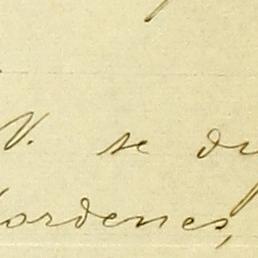 V. se
ordenes,